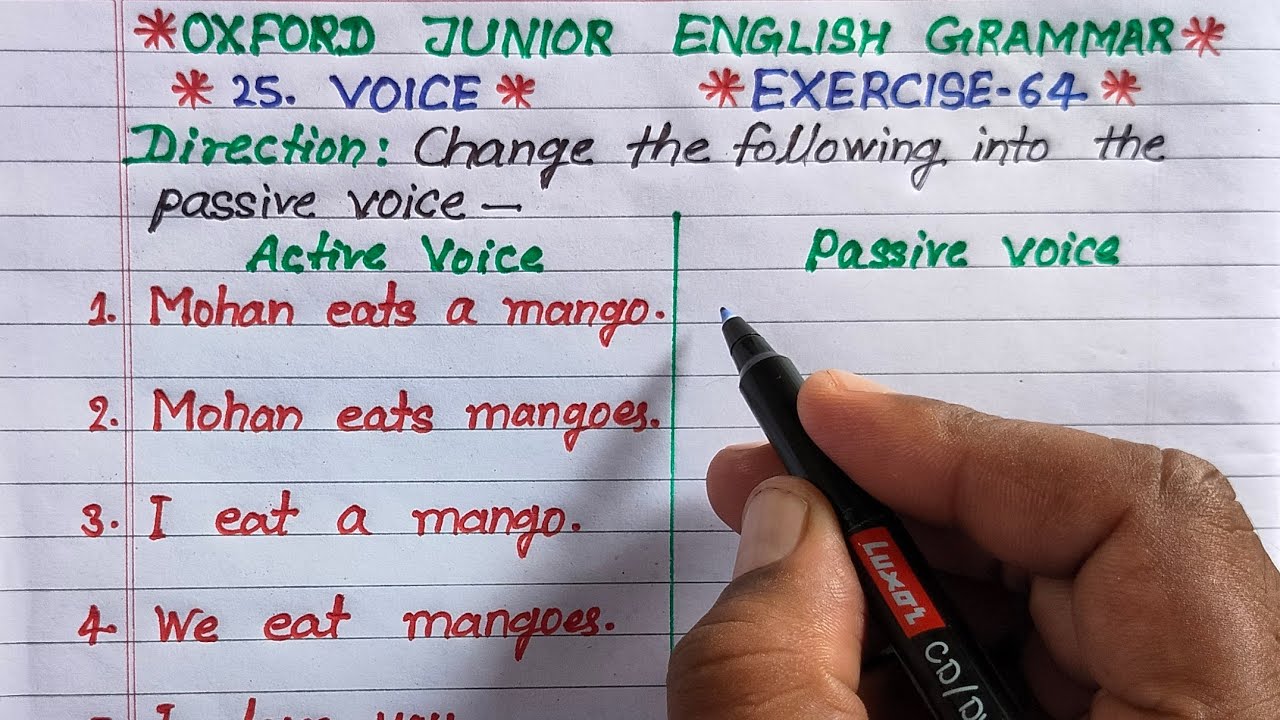 *OXFORD JUNIOR ENGLISH GRAMMAR*
*25. VOICE* *EXERCISE-64*
Direction: Change the following into the
passive voice —
Active Voice Passive Voice
1. Mohan eats a mango.
2. Mohan eats mangoes.
3. I eat a mango.
4. We eat mangoes.
I you
Luxor
CD/